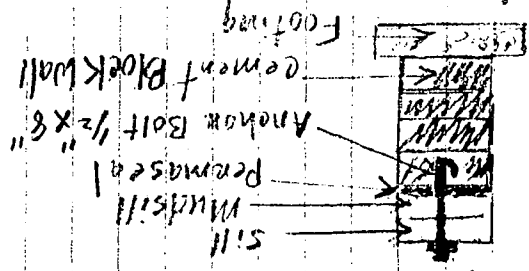 Sill
Mudsill
Permaseal
Anchor Bolt 1/2" x 8"
Cement Block Wall
Footing